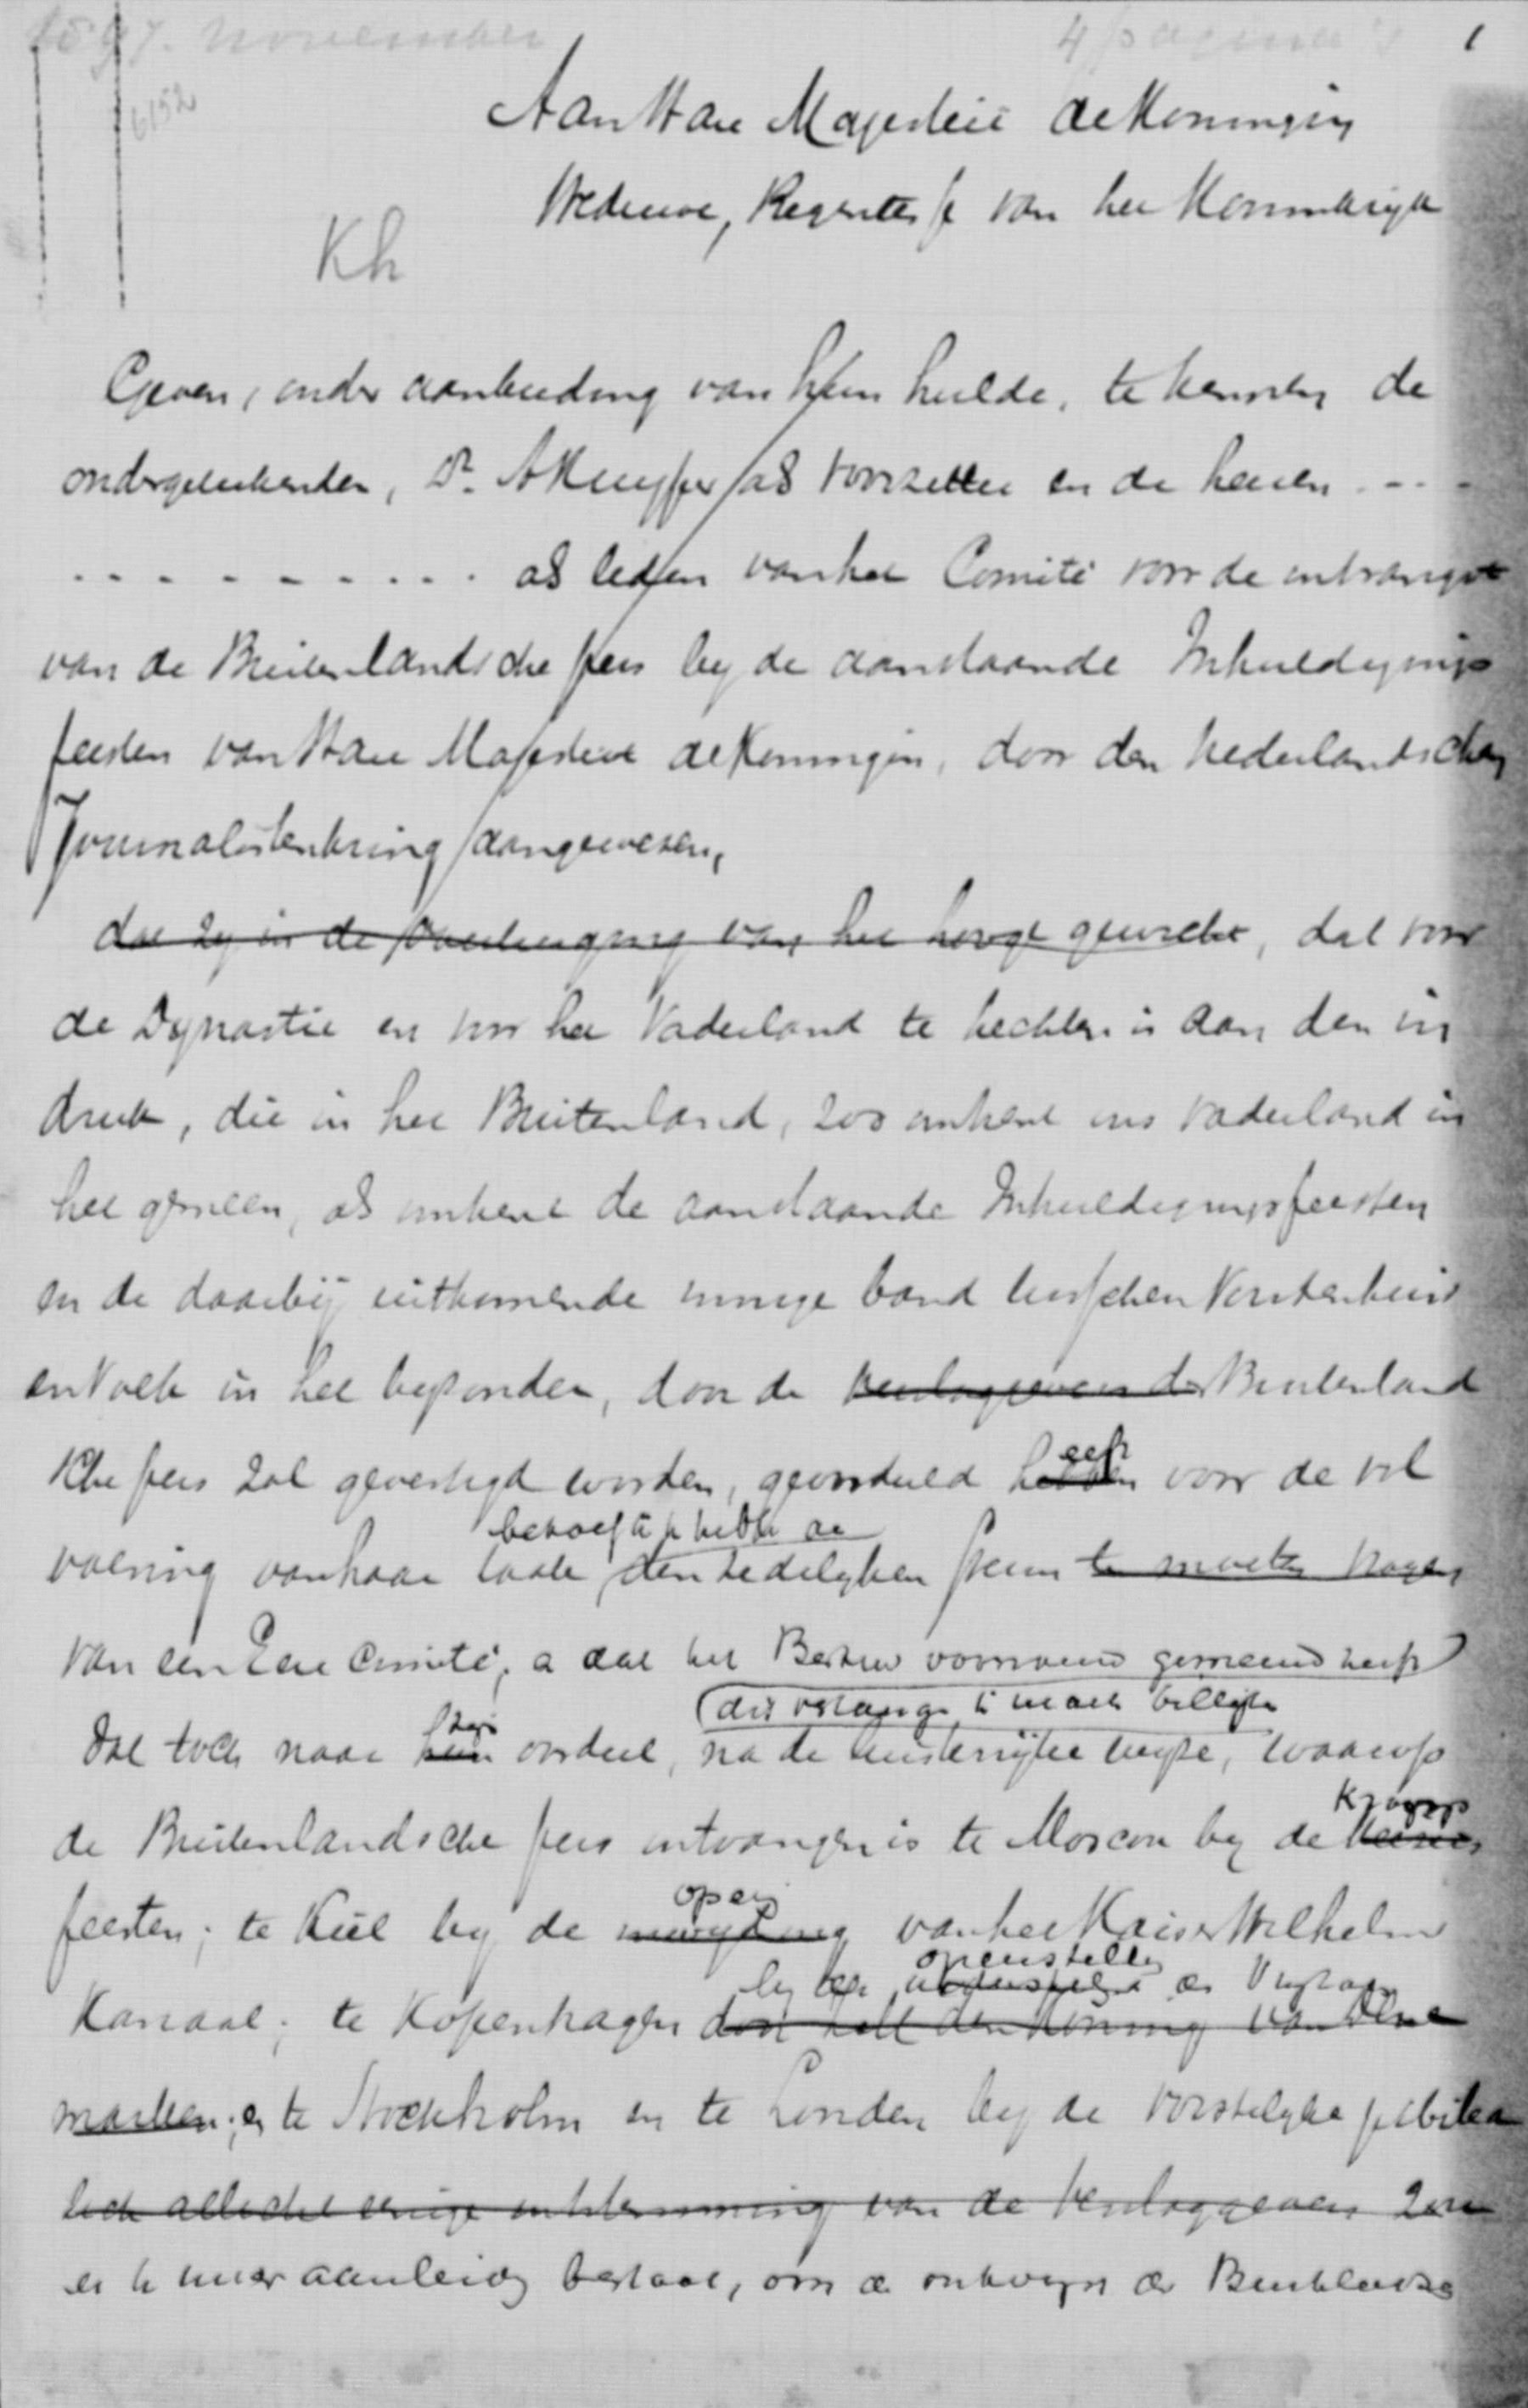 1897. November 4 pagina's 1
6152
Aan Hare Majesteit de Koningin
Weduwe, Regentesse van het Koninkrijk
Kh
Geven, onder aanbieding van hun hulde, te kennen de
ondergeteekenden, Dr. A Kuyper als voorzitter en de heeren . - - -
. . . . . . . . . . . als leden van het Comité voor de ontvangst
van de Buitenlandsche pers by de aanstaande Inhuldigings
feesten van Hare Majesteit de Koningin, door den Nederlandschen
Journalistenkring aangewezen,
dat zy in de overtuiging van het hooge gewicht, dat voor
de Dynastie en voor het Vaderland te hechten is aan den in
druk, die in het Buitenland, zoo omtrent ons Vaderland in
het gemeen, als omtrent de aanstaande Inhuldigingsfeesten
en de daarbij uitkomende innige band tusschen Vorstenhuis
en Volk in het byzonder, door de verslaggevers der Buitenland
sche pers zal gevestigd worden, geoordeeld hebben voor de vol
eeft
behoefte te hebben aan
voering van haar taak den zedelyken steun te moeten vragen
van een Eere Comité,
dat toch naar hun oordeel, na de luisterrijke wyze, waarop
zijn
de Buitenlandsche pers ontvangen is te Moscou by de
Kronings
feesten; te Kiel by de van het Kaiser Wilhelm
opening
by de openstelling der
Kanaal; te Kopenhagen door den Koning van Dene
marken; en te Stockholm en te Londen by de vorstelyke jubilea
van de verslaggevers
er te meer aanleiding bestaat, om de ontvangst der Buitenlandsche